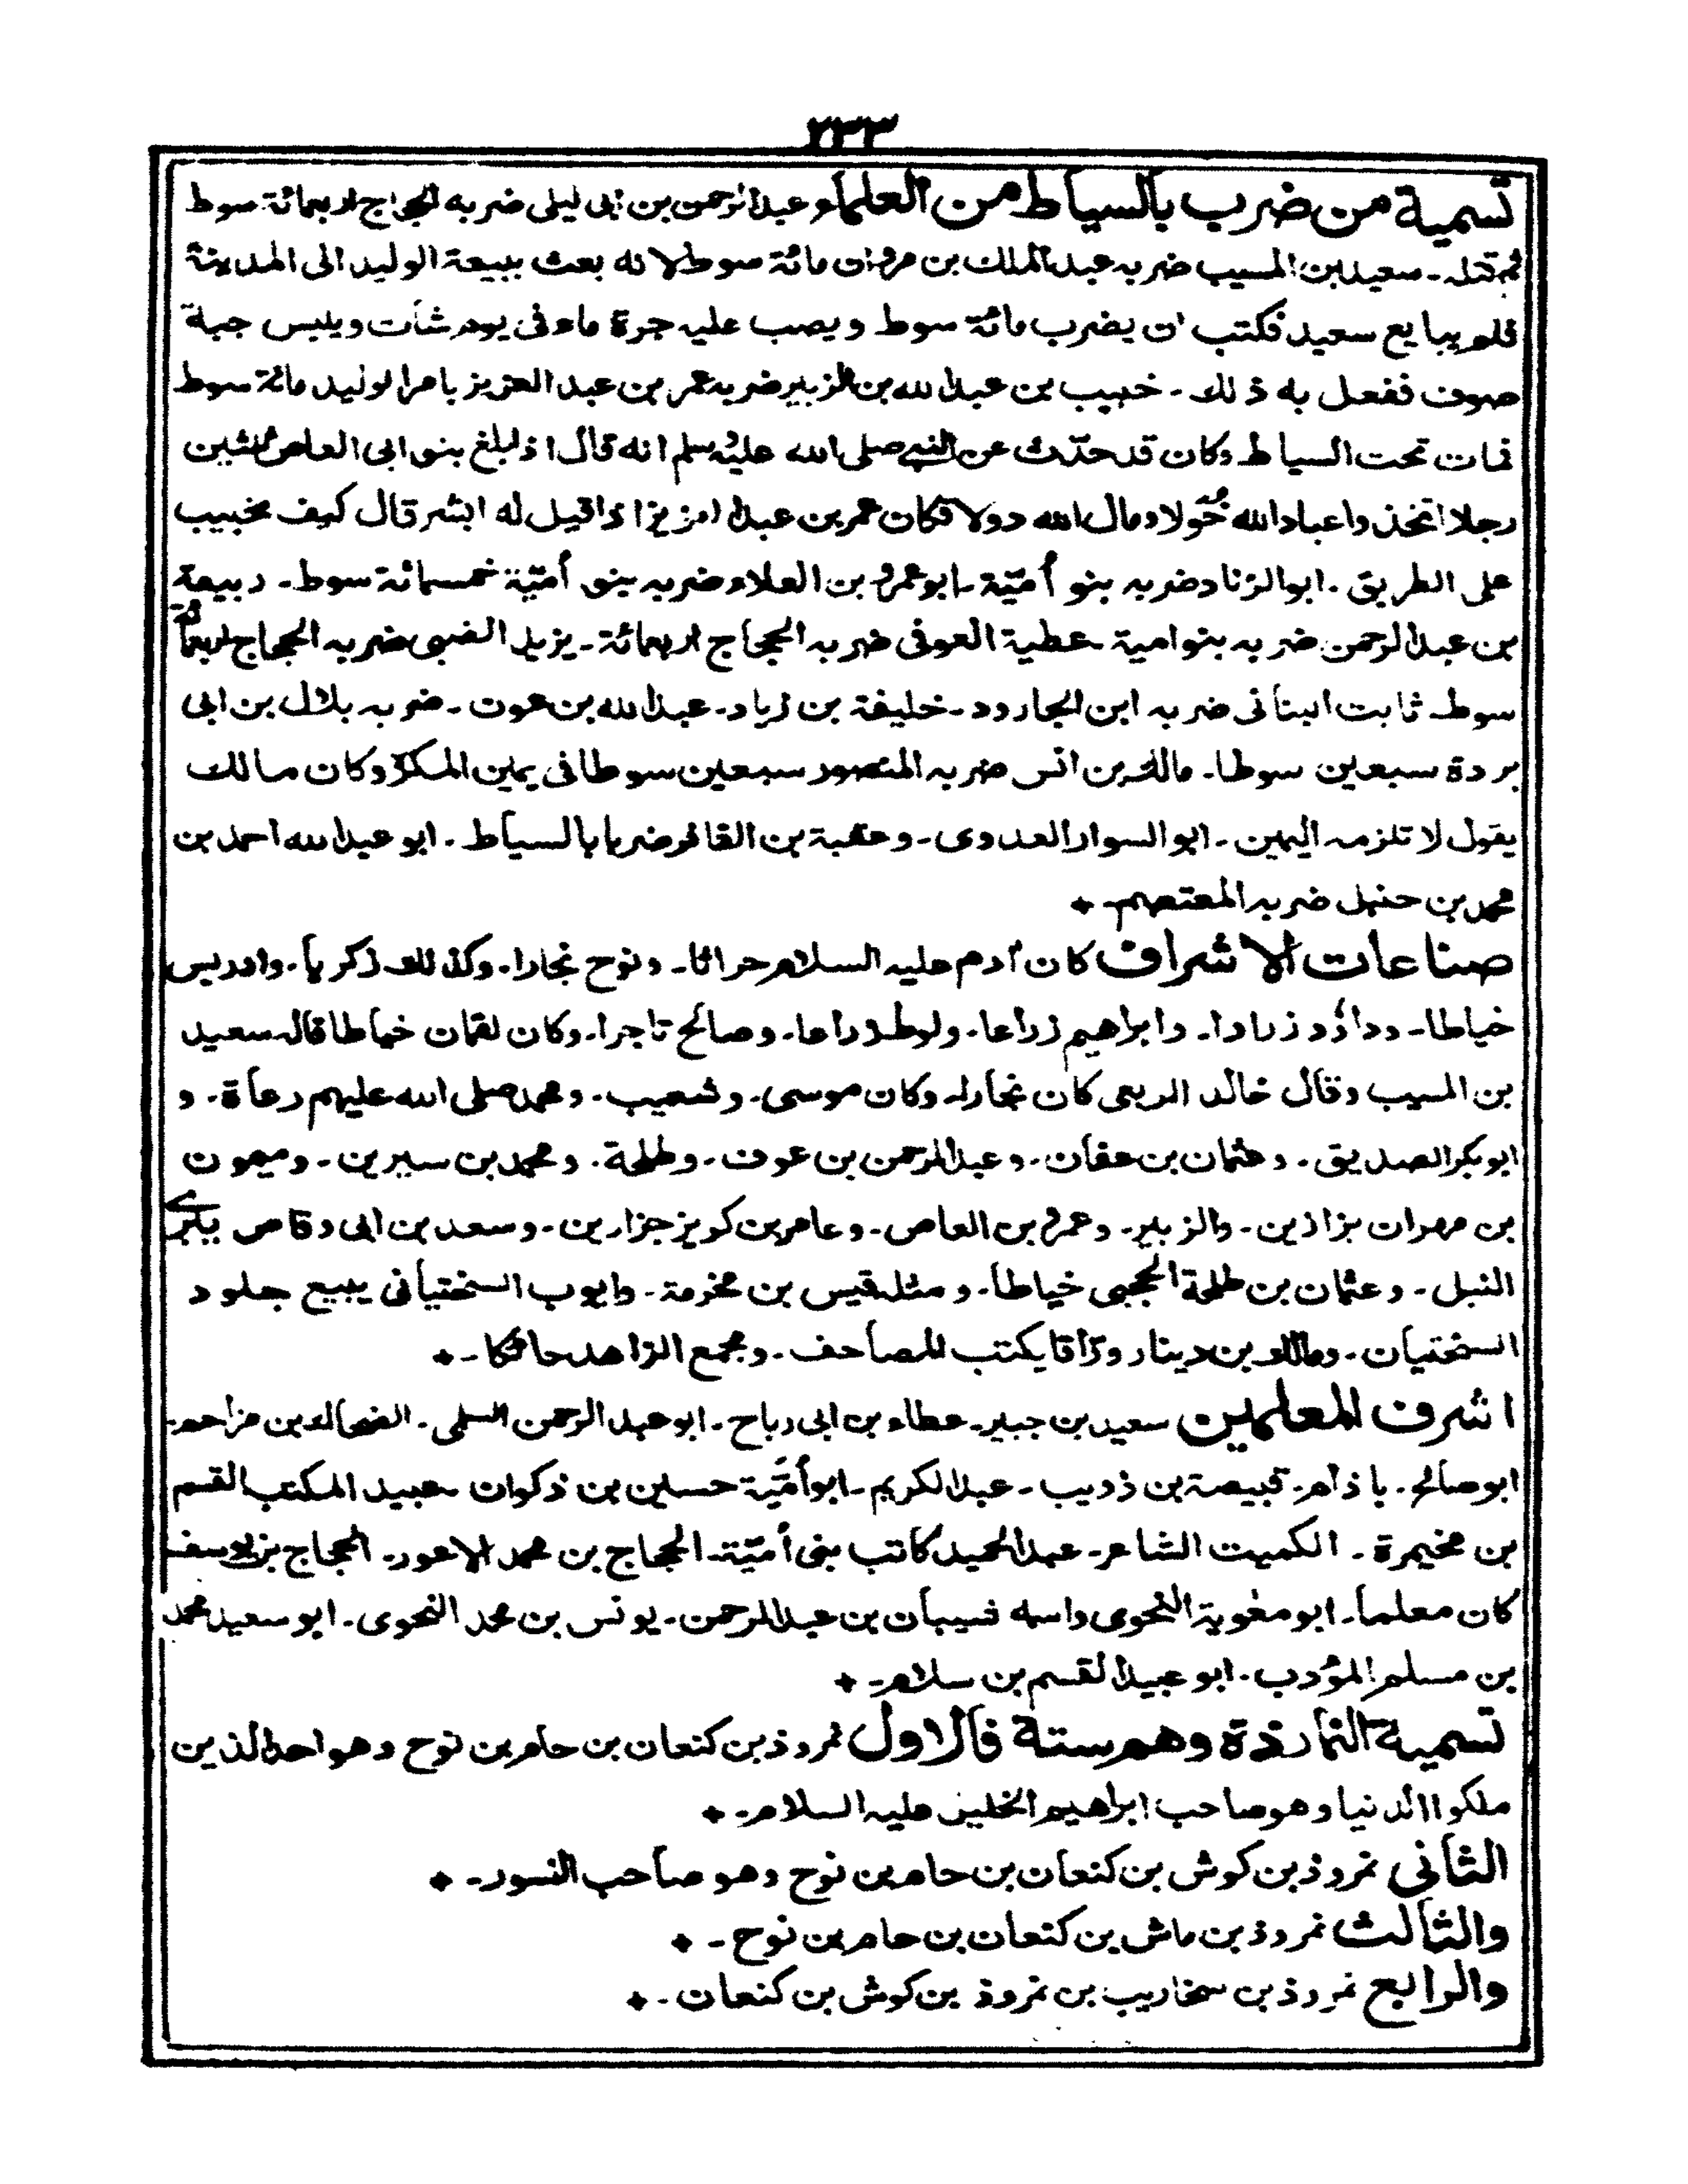 ٢٣٣
تسمية من ضرب بالسياط من العلماء عبدالرحمن بن ابى ليلى ضربه الحجاج اربعمائة سوط
ثم قتله ـ سعيد ابن المسيب ضربه عبد الملك بن مروان مائة سوط لانه بعث ببيعة الوليد الى المدينة
فلم يبايع سعيد فكتب ان يضرب مائة سوط ويصب عليه جرة ماء فى يوم شات ويلبس جبة
صوف ففعل به ذلك ـ خبيب بن عبدالله بن الزبير ضربه عمر بن عبد العزيز بامر الوليد مائة سوط
فمات تحت السياط وكان قد حدّث عن النبى صلى الله عليه وسلم انه قال اذا بلغ بنو ابى العاص ثلثين
رجلا اتخذوا عباد الله خولا ومال الله دولا فكان عمر بن عبد العزيز اذا قيل له ابشر قال كيف بخبيب
على الطريق ـ ابوالزناد ضربه بنو أميّة ـ ابوعمرو بن العلاء ضربه بنو أميّة خمسمائة سوط ـ ربيعة
بن عبدالرحمن ضربه بنوامية ـ عطية العوفى ضربه الحجاج اربعمائة ـ يزيد الضبى ضربه الحجاج اربعمائة
سوط ـ ثابت البنانى ضربه ابن الجارود ـ خليفة بن زياد ـ عبدالله بن عون ـ ضربه بلال بن ابى
بردة سبعين سوطا ـ مالك بن انس ضربه المنصور سبعين سوطا فى يمين المكره وكان مالك
يقول لا تلزمه اليمين ـ ابو السوار العدوى ـ وعقبة بن الغافر ضربا بالسياط ـ ابو عبدالله احمد بن
محمد بن حنبل ضربه المعتصم ـ
صناعات الاشراف كان آدم عليه السلام حراثا ـ ونوح نجارا ـ وكذلك زكريا ـ وادريس
خياطا ـ وداؤد زرادا ـ وابراهيم زراعا ـ ولوط زراعا ـ وصالح تاجرا ـ وكان لقمان خياطا قاله سعيد
بن المسيب وقال خالد الربعى كان نجارا ـ وكان موسى ـ وشعيب ـ ومحمد صلى الله عليهم رعاة ـ و
ابوبكر الصديق ـ وعثمان بن عفان ـ وعبدالرحمن بن عوف ـ وطلحة ـ ومحمد بن سيرين ـ وميمون
بن مهران بزازين ـ والزبير ـ وعمرو بن العاص ـ وعامر بن كريز جزارين ـ وسعد بن ابى وقاص يبرى
النبل ـ وعثمان بن طلحة الحجبى خياطا ـ ومثله قيس بن مخزمة ـ وايوب السختيانى يبيع جلود
السختيان ـ ومالك بن دينار ورّاقا يكتب المصاحف ـ ومجمع الزاهد حائكا ـ
اشرف المعلمين سعيد بن جبير ـ عطاء بن ابى رباح ـ ابوعبد الرحمن السلمى ـ الضحاك بن مزاحم ـ
ابوصالح ـ باذام ـ قبيصة بن ذويب ـ عبدالكريم ـ ابوأميّة حسلين بن ذكوان ـ عبيد المكتب القسم
بن مخيمرة ـ الكميت الشاعر ـ عبدالحميد كاتب بنى أميّة ـ الحجاج بن محمد الاعور ـ الحجاج بن يوسف
كان معلما ـ ابو معٰوية النحوى واسمه شيبان بن عبدالرحمن ـ يونس بن محمد النحوى ـ ابو سعيد محمد
بن مسلم المؤدب ـ ابو عبيد القسم بن سلام ـ
تسمية النماردة وهم ستة فالاول نمروذ بن كنعان بن حام بن نوح وهو احد الذين
ملكوا الدنيا وهو صاحب ابراهيم الخليل عليه السلام ـ
الثانى نمروذ بن كوش بن كنعان بن حام بن نوح وهو صاحب النسور ـ
والثالث نمروذ بن ماش بن كنعان بن حام بن نوح ـ
والرابع نمروذ بن سنحاريب بن نمروذ بن كوش بن كنعان ـ